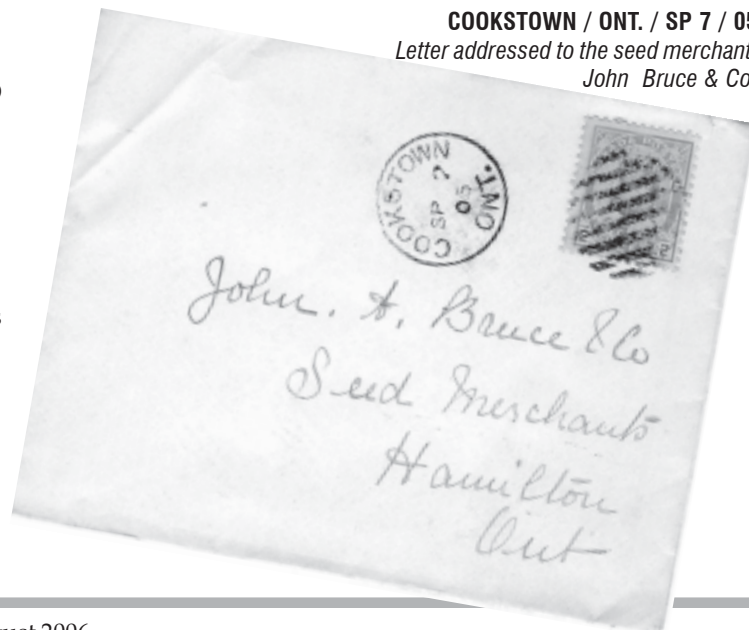 COOKSTOWN / ONT. / SP 7 / 05
Letter addressed to the seed merchant
John Bruce & Co
COOKSTOWN
ONT.
SP 7
05
2
John. A. Bruce & Co
Seed Merchants
Hamilton
Ont
2006